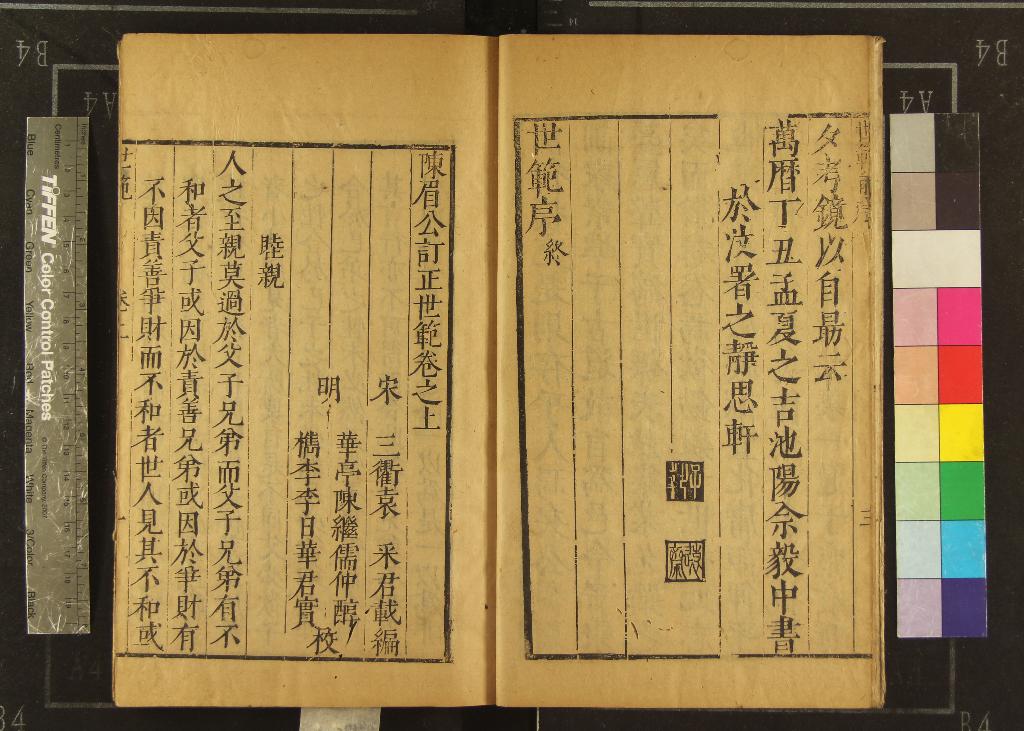 夕考鏡以自勗云
萬曆丁丑孟夏之吉池陽佘毅中書
於汝署之靜思軒
世範序終
陳眉公訂正世範卷之上
宋 三衢袁 采君載編
明 華亭陳繼儒仲醇
檇李李日華君實 校
睦親
人之至親莫過於父子兄弟而父子兄弟有不
和者父子或因於責善兄弟或因於爭財有
不因責善爭財而不和者世人見其不和或
世範
卷上
三
TIFFEN Color Control Patches
Centimetres
Blue
Cyan
Green
Yellow
Red
Magenta
White
3/Color
Black
B4
A4
A4
B4
B4